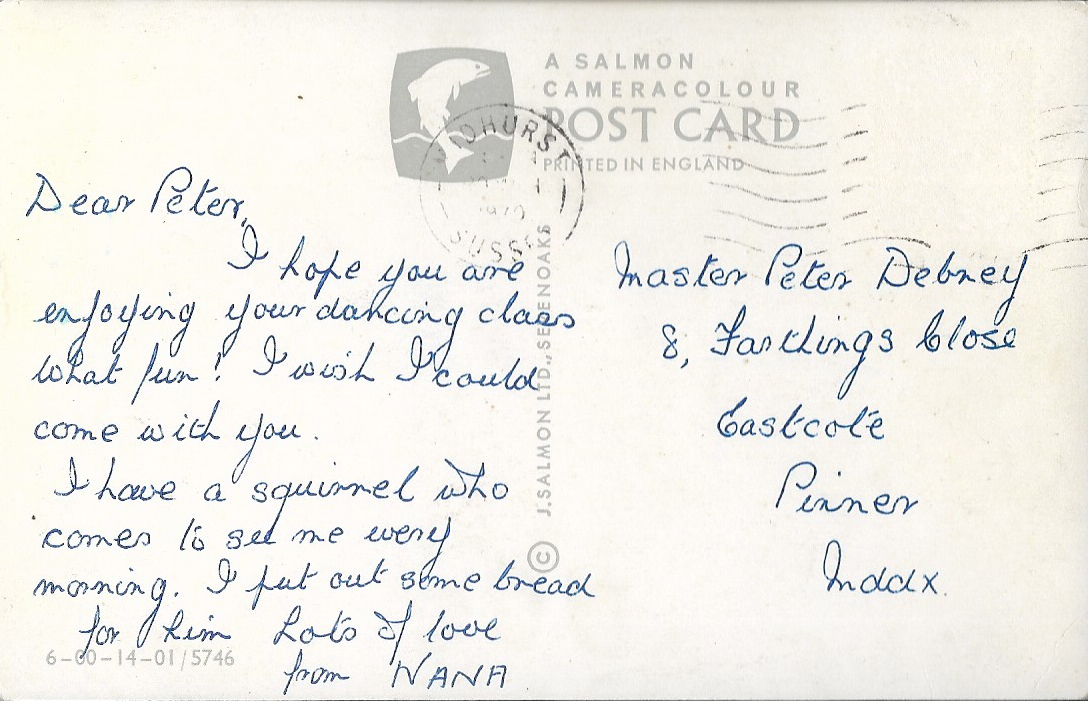 A SALMON
CAMERACOLOUR
POST CARD
PRINTED IN ENGLAND
MIDHURST
SUSSEX
Dear Peter,
I hope you are
enjoying your dancing class
What fun! I wish I could
come with you.
I have a squirrel who
comes to see me every
morning. I put out some bread
for him Lots of love
from NANA
6-00-14-01/5746
© J. SALMON LTD., SEVENOAKS
Master Peter Debney
8, Farthings Close
Eastcote
Pinner
Mddx.